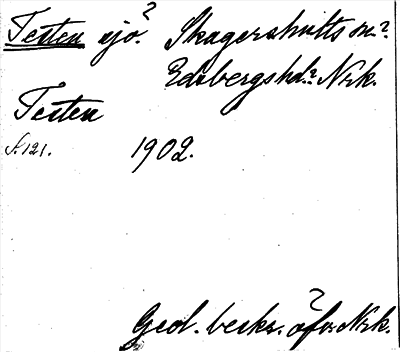 Testen sjö? Skagershults sn?
Edsbergs hd? Nrk.
Testen
S. 121. 1902.
Geol. beskr. öfver Nrk.